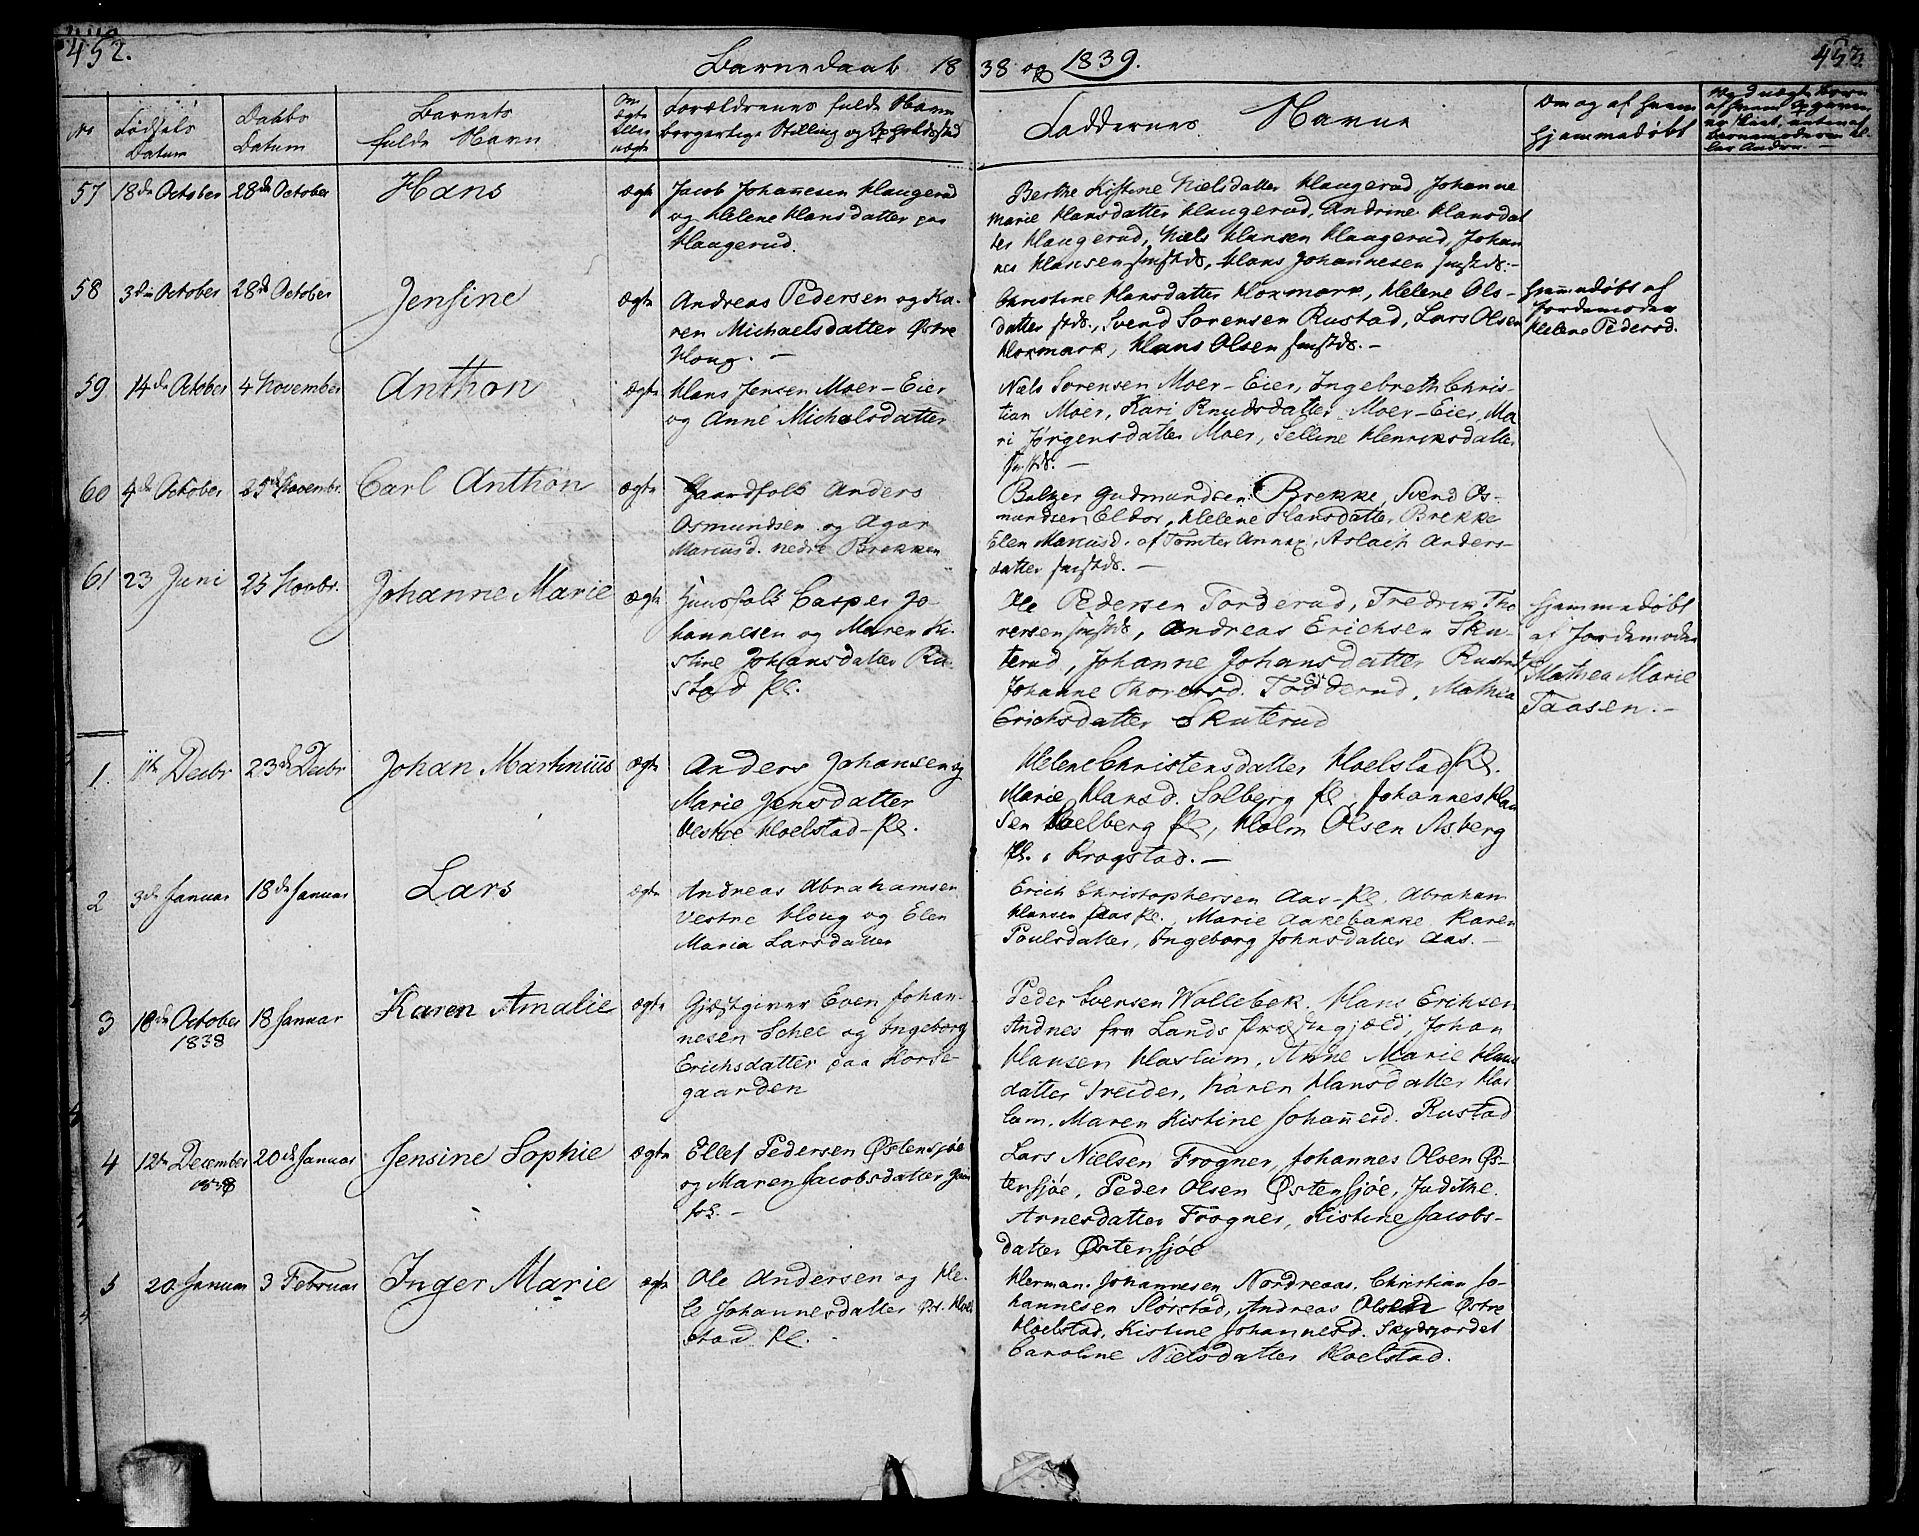 452.
Barnedaab 18
38 og 1839.
453
No
Fødsels Datum
Daabs Datum
Barnets fulde Navn
Om ægte eller uægte
Forældrenes fulde Navn borgerlige Stilling og Opholdsstad
Faddernes Navne
Om og af hvem hjemmedøbt
57
18de October
28de October
Hans
ægte
Jacob Johannesen Haugerud
og Helene Hansdatter paa
Haugerud.
Berthe Kistine Nielsdatter Haugerud, Johanne
Marie Hansdatter Haugerud, Andrine Hansdat
ter Haugerud, Niels Hansen Haugerud, Johan
nes Hansen sustds., Hans Johannesen sustds.-
58
3die October
28de October
Jensine
ægte
Andreas Pedersen og Ka-
ren Michaelsdatter Østre
Houg. -
Christine Hansdatter Hoxmark, Helene Ols-
datter stds., Svend Sørensen Rustad, Lars Olsen
Hoxmark, Hans Olsen sustds. -
hjemmedøbt af
Jordemoder
Helene Pedersd.
59
14de October
4 November
Anthon
ægte
Hans Jensen Moer-Eier
og Anne Michelsdatter
Niels Sørensen Moer-Eier, Ingebreth Chris-
tian Moer, Kari Knudsdatter Moer-Eier, Ma
ri Jørgensdatter Moer, Selline Henriksdatter
sustds. -
60
4de October
25de Novembr.
Carl Anthon
ægte
Gaardfolk Anders
Osmundsen og Agar
Mariusd. nedre Brekken
Baltzer Gudmundsen Brekke, Svend Os-
mundsen Eldor, Helene Hansdatter Brekke
Elen Mariusd. af Tomter Annex, Aslach Anders-
datter sustds. -
61
23 Juni
25 Novbr.
Johanne Marie
ægte
Huusfolk Casper Jo-
hannesen og Maren Ki-
stine Johansdatter Ru-
stad Pl.
Ole Pedersen Torderud, Fredrik Tho
rersen sustds, Andreas Erichsen Sku-
terud, Johanne Johansdatter Rustad
Johanne Thorersd. Torderud, Mathea
Erichsdatter Skuterud
hjemmedøbt
af Jordemoder
Mathea Marie
Taasen. -
1.
11te Decbr
23de Decbr
Johan Martinius
ægte
Anders Johansen og
Marie Jensdatter
Vestre Hoelstad-Pl.
Helene Christensdatter Hoelstad Pl.
Marie Hansd. Solberg Pl, Johannes Han
sen Hoelberg Pl, Holm Olsen Asberg
Pl. i Krogstad. -
2
3de Januar
18de Januar
Lars
ægte
Andreas Abrahamsen
Vestre Houg og Elen
Maria Larsdatter
Erich Christophersen Aas-Pl. Abraham
Hansen Aas Pl., Marie Aakebakke Karen
Poulsdatter, Ingeborg Johnsdatter Aas. -
3
18de October
1838
18 Januar
Karen Amalie
ægte
Gjæstgiver Even Johan-
nesen Schee og Ingeborg
Erichsdatter paa Korse-
gaarden
Peder Svensen Vollebek. Hans Erichsen
Andnes fra Lands Præstegjæld, Johan
Hansen Haslum, Anne Marie Hans
datter Treider, Karen Hansdatter Has
lum. Maren Kistine Johannesd. Rustad
4
12te December
1838
20de Januar
Jensine Sophie
ægte
Ellef Pedersen Østensjøe
og Maren Jacobsdatter
Lars Nielsen Frogner, Johannes Olsen Øs-
tensjøe, Peder Olsen Østensjøe, Judithe
Arnesdatter Frogner, Kistine Jacobs-
datter Østensjøe
5
20 Januar
3 Februar
Inger Marie
ægte
Ole Andersen og He-
le Johannesdatter Øst. Hoel
stad Pl.
Herman Johannesen Nordreaas, Christian Jo-
hannesen Slørstad, Andreas Olsen Østre
Hoelstad, Kistine Johannesd. Skydsjordet
Caroline Nielsdatter Hoelstad.